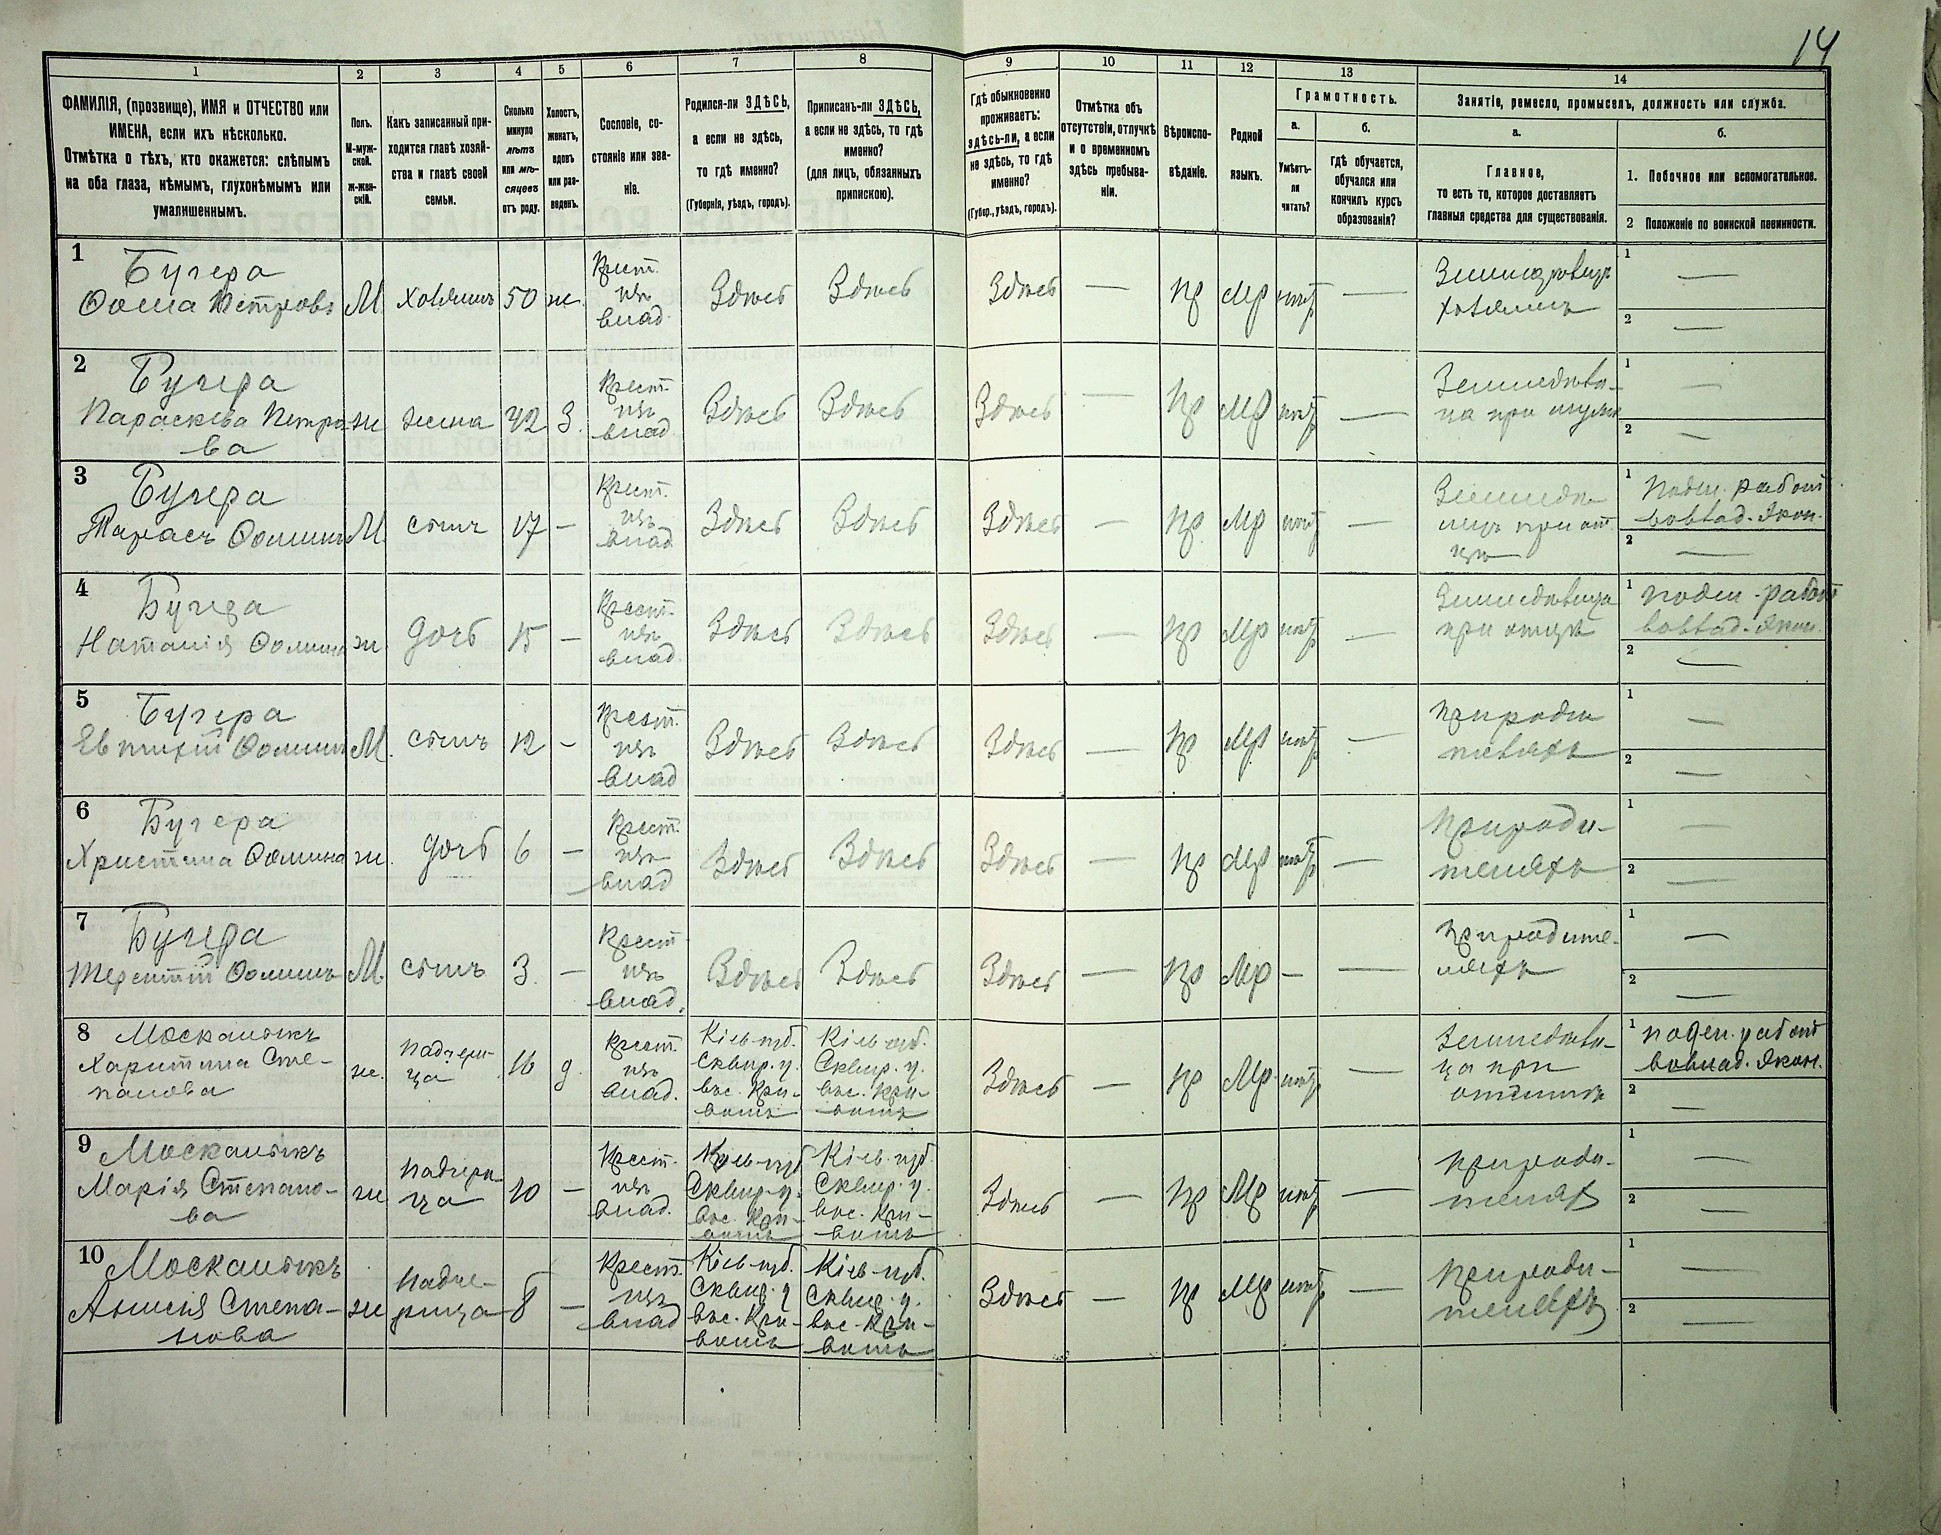 14
1 2 3 4 5 6 7 8 9 10 11 12 13 14
ФАМИЛІЯ, (прозвище), ИМЯ и ОТЧЕСТВО или
ИМЕНА, если ихъ нѣсколько.
Отмѣтка о тѣхъ, кто окажется: слѣпымъ
на оба глаза, нѣмымъ, глухонѣмымъ или
умалишеннымъ.
Полъ.
М-муж-
ской.
ж-жен-
скій.
Какъ записанный при-
ходится главѣ хозяй-
ства и главѣ своей
семьи.
Сколько
минуло
лѣтъ
или мѣ-
сяцевъ
отъ роду.
Холостъ,
женатъ,
вдовъ
или раз-
веденъ.
Сословіе, со-
стояніе или зва-
ніе.
Родился-ли ЗДѢСЬ,
а если не здѣсь,
то гдѣ именно?
(Губернія, уѣздъ, городъ).
Приписанъ-ли ЗДѢСЬ,
а если не здѣсь, то гдѣ
именно?
(для лицъ, обязанныхъ
припискою).
Гдѣ обыкновенно
проживаетъ:
здѣсь-ли, а если
не здѣсь, то гдѣ
именно?
(Губер., уѣздъ, городъ).
Отмѣтка объ
отсутствіи, отлучкѣ
и о временномъ
здѣсь пребыва-
ніи.
Вѣроиспо-
вѣданіе.
Родной
языкъ.
Грамотность.
а.
Умѣетъ-
ли
читать?
б.
гдѣ обучается,
обучался или
кончилъ курсъ
образованія?
Занятіе, ремесло, промыселъ, должность или служба.
а.
Главное,
то есть то, которое доставляетъ
главныя средства для существованія.
б.
1. Побочное или вспомогательное.
2 Положеніе по воинской повинности.
1
Бугера
Фома Петровъ
М. хозяинъ 50 ж.
Крест.
изъ
влад.
Здѣсь Здѣсь Здѣсь — пр мр нѣтъ —
хозяинъ
1 —
2 —
2
Бугера
Параскева Петро
ва
ж жена 42 З.
Крест.
изъ
влад
Здѣсь Здѣсь Здѣсь — пр мр нѣтъ —
1 —
2 —
3
Бугера
Тарасъ Фоминъ
М. сынъ 17 —
Крест.
изъ
влад
Здѣсь Здѣсь Здѣсь — пр. мр нѣтъ —
при от
цѣ
1 поден. работ
вовлад. Экон.
2 —
4
Бугера
Наталія Фомина
ж. дочь 15 —
Крест.
изъ
влад.
Здѣсь Здѣсь Здѣсь — пр мр нѣтъ —
при отцѣ
1 поден. работ
вовлад. Экон.
2 —
5
Бугера
Евтихій Фоминъ
М. сынъ 12 —
Крест.
изъ
влад
Здѣсь Здѣсь Здѣсь — пр мр нѣтъ —
При роди
теляхъ
1 —
2 —
6
Бугера
Христина Фомина
ж. дочь 6 —
Крест.
изъ
влад
Здѣсь Здѣсь Здѣсь — пр мр нѣтъ —
При роди-
теляхъ
1 —
2 —
7
Бугера
Терентій Фоминъ
М. сынъ 3 —
Крест
изъ
влад.
Здѣсь Здѣсь Здѣсь — пр мр — —
При родите-
ляхъ
1 —
2 —
8
Москалюкъ
Харитина Сте-
панова
ж.
падчери-
ца
16 д.
Крест.
изъ
влад.
Кіев. губ.
Сквир. у.
Кіев. губ.
Сквир. у.
Здѣсь — пр мр. нѣтъ —
ца при
отчимѣ
1 поден. работ
вовлад. Экон.
2 —
9
Москалюкъ
Марія Степано-
ва
ж
падчери-
ца
10 —
Крест.
изъ
влад.
Кіев. губ.
Сквир. у.
Кіев. губ.
Сквир. у.
Здѣсь — пр мр нѣтъ —
При роди-
телях
1 —
2 —
10
Москалюкъ
Анисія Степа-
нова
ж
падче-
рица
8 —
Крест.
изъ
влад
Кіев. губ.
Сквир. у
Кіев. губ.
Сквир. у.
Здѣсь — пр мр нѣтъ —
При роди-
теляхъ
1 —
2 —